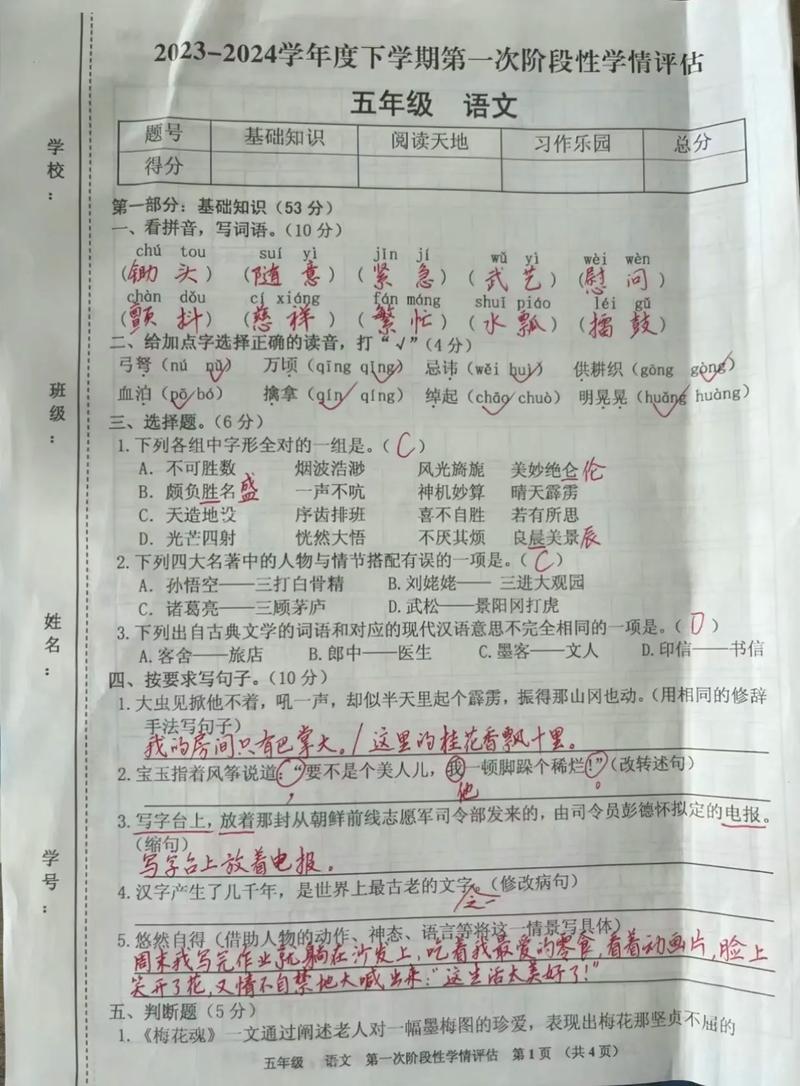 2023-2024学年度下学期第一次阶段性学情评估
五年级 语文
题号 基础知识 阅读天地 习作乐园 总分
得分
学校：
班级：
姓名：
学号：
第一部分：基础知识（53分）
一、看拼音，写词语。（10分）
chú tou suí yì jǐn jí wǔ yì wèi wèn
（锄头）（随意）（紧急）（武艺）（慰问）
chàn dǒu cí xiáng fán máng shuǐ piáo léi gǔ
（颤抖）（慈祥）（繁忙）（水瓢）（擂鼓）
二、给加点字选择正确的读音，打“√”（4分）
弓弩（nú nǔ√） 万顷（qīng qǐng√） 忌讳（wěi huì√） 供耕织（gōng gòng√）
血泊（pō√ bó） 擒拿（qín√ qíng） 绰起（chāo√ chuò） 明晃晃（huǎng√ huàng）
三、选择题。（6分）
1.下列各组中字形全对的一组是。（C）
A．不可胜数 烟波浩渺 风光旖旎 美妙绝仑 伦
B．颇负胜名 盛 一声不吭 神机妙算 晴天霹雳
C．天造地设 序齿排班 喜不自胜 若有所思
D．光芒四射 恍然大悟 不厌其烦 良晨美景 辰
2.下列四大名著中的人物与情节搭配有误的一项是。（C）
A．孙悟空——三打白骨精 B.刘姥姥—— 三进大观园
C．诸葛亮——三顾茅庐 D.武松——景阳冈打虎
3.下列出自古典文学的词语和对应的现代汉语意思不完全相同的一项是。（D）
A.客舍——旅店 B.郎中——医生 C.墨客——文人 D.印信——书信
四、按要求写句子。（10分）
1.大虫见掀他不着，吼一声，却似半天里起个霹雳，振得那山冈也动。（用相同的修辞
手法写句子）
我的房间只有巴掌大。/这里的桂花香飘十里。
2.宝玉指着风筝说道：“要不是个美人儿，我一顿脚跺个稀烂！”（改转述句）
， 他 。
3.写字台上，放着那封从朝鲜前线志愿军司令部发来的，由司令员彭德怀拟定的电报。
（缩句）
写字台上放着电报。
4.汉字产生了几千年，是世界上最古老的文字。（修改病句）
之一
5.悠然自得（借助人物的动作、神态、语言等将这一情景写具体）
周末我写完作业就躺在沙发上，吃着我最爱的零食，看着动画片，脸上
笑开了花，又情不自禁地大喊出来：“这生活太美好了！”
五、判断题（5分）
1.《梅花魂》一文通过阐述老人对一幅墨梅图的珍爱，表现出梅花那坚贞不屈的
五年级 语文 第一次阶段性学情评估 第1页 （共4页）